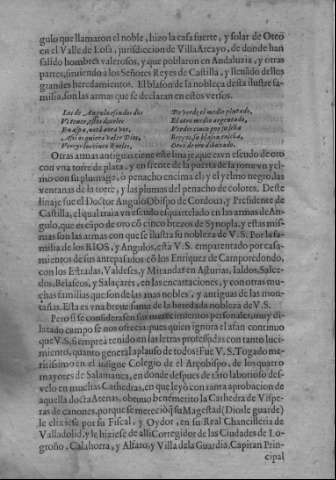 gulo que llamaron el noble, hizo la casa fuerte, y solar de Oteo
en el Valle de Losa, jurisdiccion de Villa Arcayo, de donde han
salido hombres valerosos, y que poblaron en Andaluzia, y otras
partes, siruiendo à los Señores Reyes de Castilla, y siendo dellos
grandes heredamientos. El blason de la nobleza desta ilustre fa-
milia, son las armas que se declaran en estos versos.
Los de Angulo siendo dos
Vi traer, estos dandoles
Reyes,
De verde el medio plateado,
El otro medio argentado,
Verdes cinco
Otras armas antiguas tiene este linaje que caen escudo de oro
con vna torre de plata, y en frente de la puerta de la torre vn yel-
mo con su plumage, ò penacho encima del; y el yelmo negro, las
ventanas de la torre, y las plumas del penacho de colores. Deste
linaje fue el Doctor Angulo Obispo de Cordoua, y Presidente de
Castilla, el qual traia vn escudo esquartelado en las armas de An-
gulo, que es cãpo de oro cõ cinco brezos de Synopla, y estas mis-
mas son las armas con que se ilustra su nobleza de V.S. Por la fa-
milia de los RIOS, y Angulos, està V.S. emparentado por casa-
mientos de sus antepasados cõ los Enriquez de Camporedondo,
con los Estradas, Valdeses, y Mirandas en Asturias, Ialdos, Salce-
dos, Velascos, y Salaçares, en las encartaciones, y con otras mu-
chas familias que son de las mas nobles, y antiguas de las mon-
tañas. Esta es vna breue suma de la heredada nobleza de V.S.
Pero si se consideran sus merecimientos personales, muy di-
latado campo se nos ofrecia: pues quien ignora el afan continuo
que V.S. siempre à tenido en las letras profesadas con tanto luci-
miento, quanto general aplauso de todos: Fue V.S. Togado me-
ritissimo en el insigne Colegio de el Arçobispo, de los quatro
mayores de Salamanca, en donde despues de tãto laborioso des-
velo en muchas Cathedras, en que leyò con suma aprobacion de
aquella docta Atenas, obtuuo benemerito la Cathedra de Vispe-
ras de canones, porque se mereciò q̃ su Magestad (Dios le guarde)
le eligiese por su Fiscal, y Oydor, en su Real Chancilleria de
Valladolid, y le hiziese de alli Corregidor de las Ciudades de Lo-
groño, Calahorra, y Alfaro, y Villa de la Guardia, Capitan Prin-
cipal